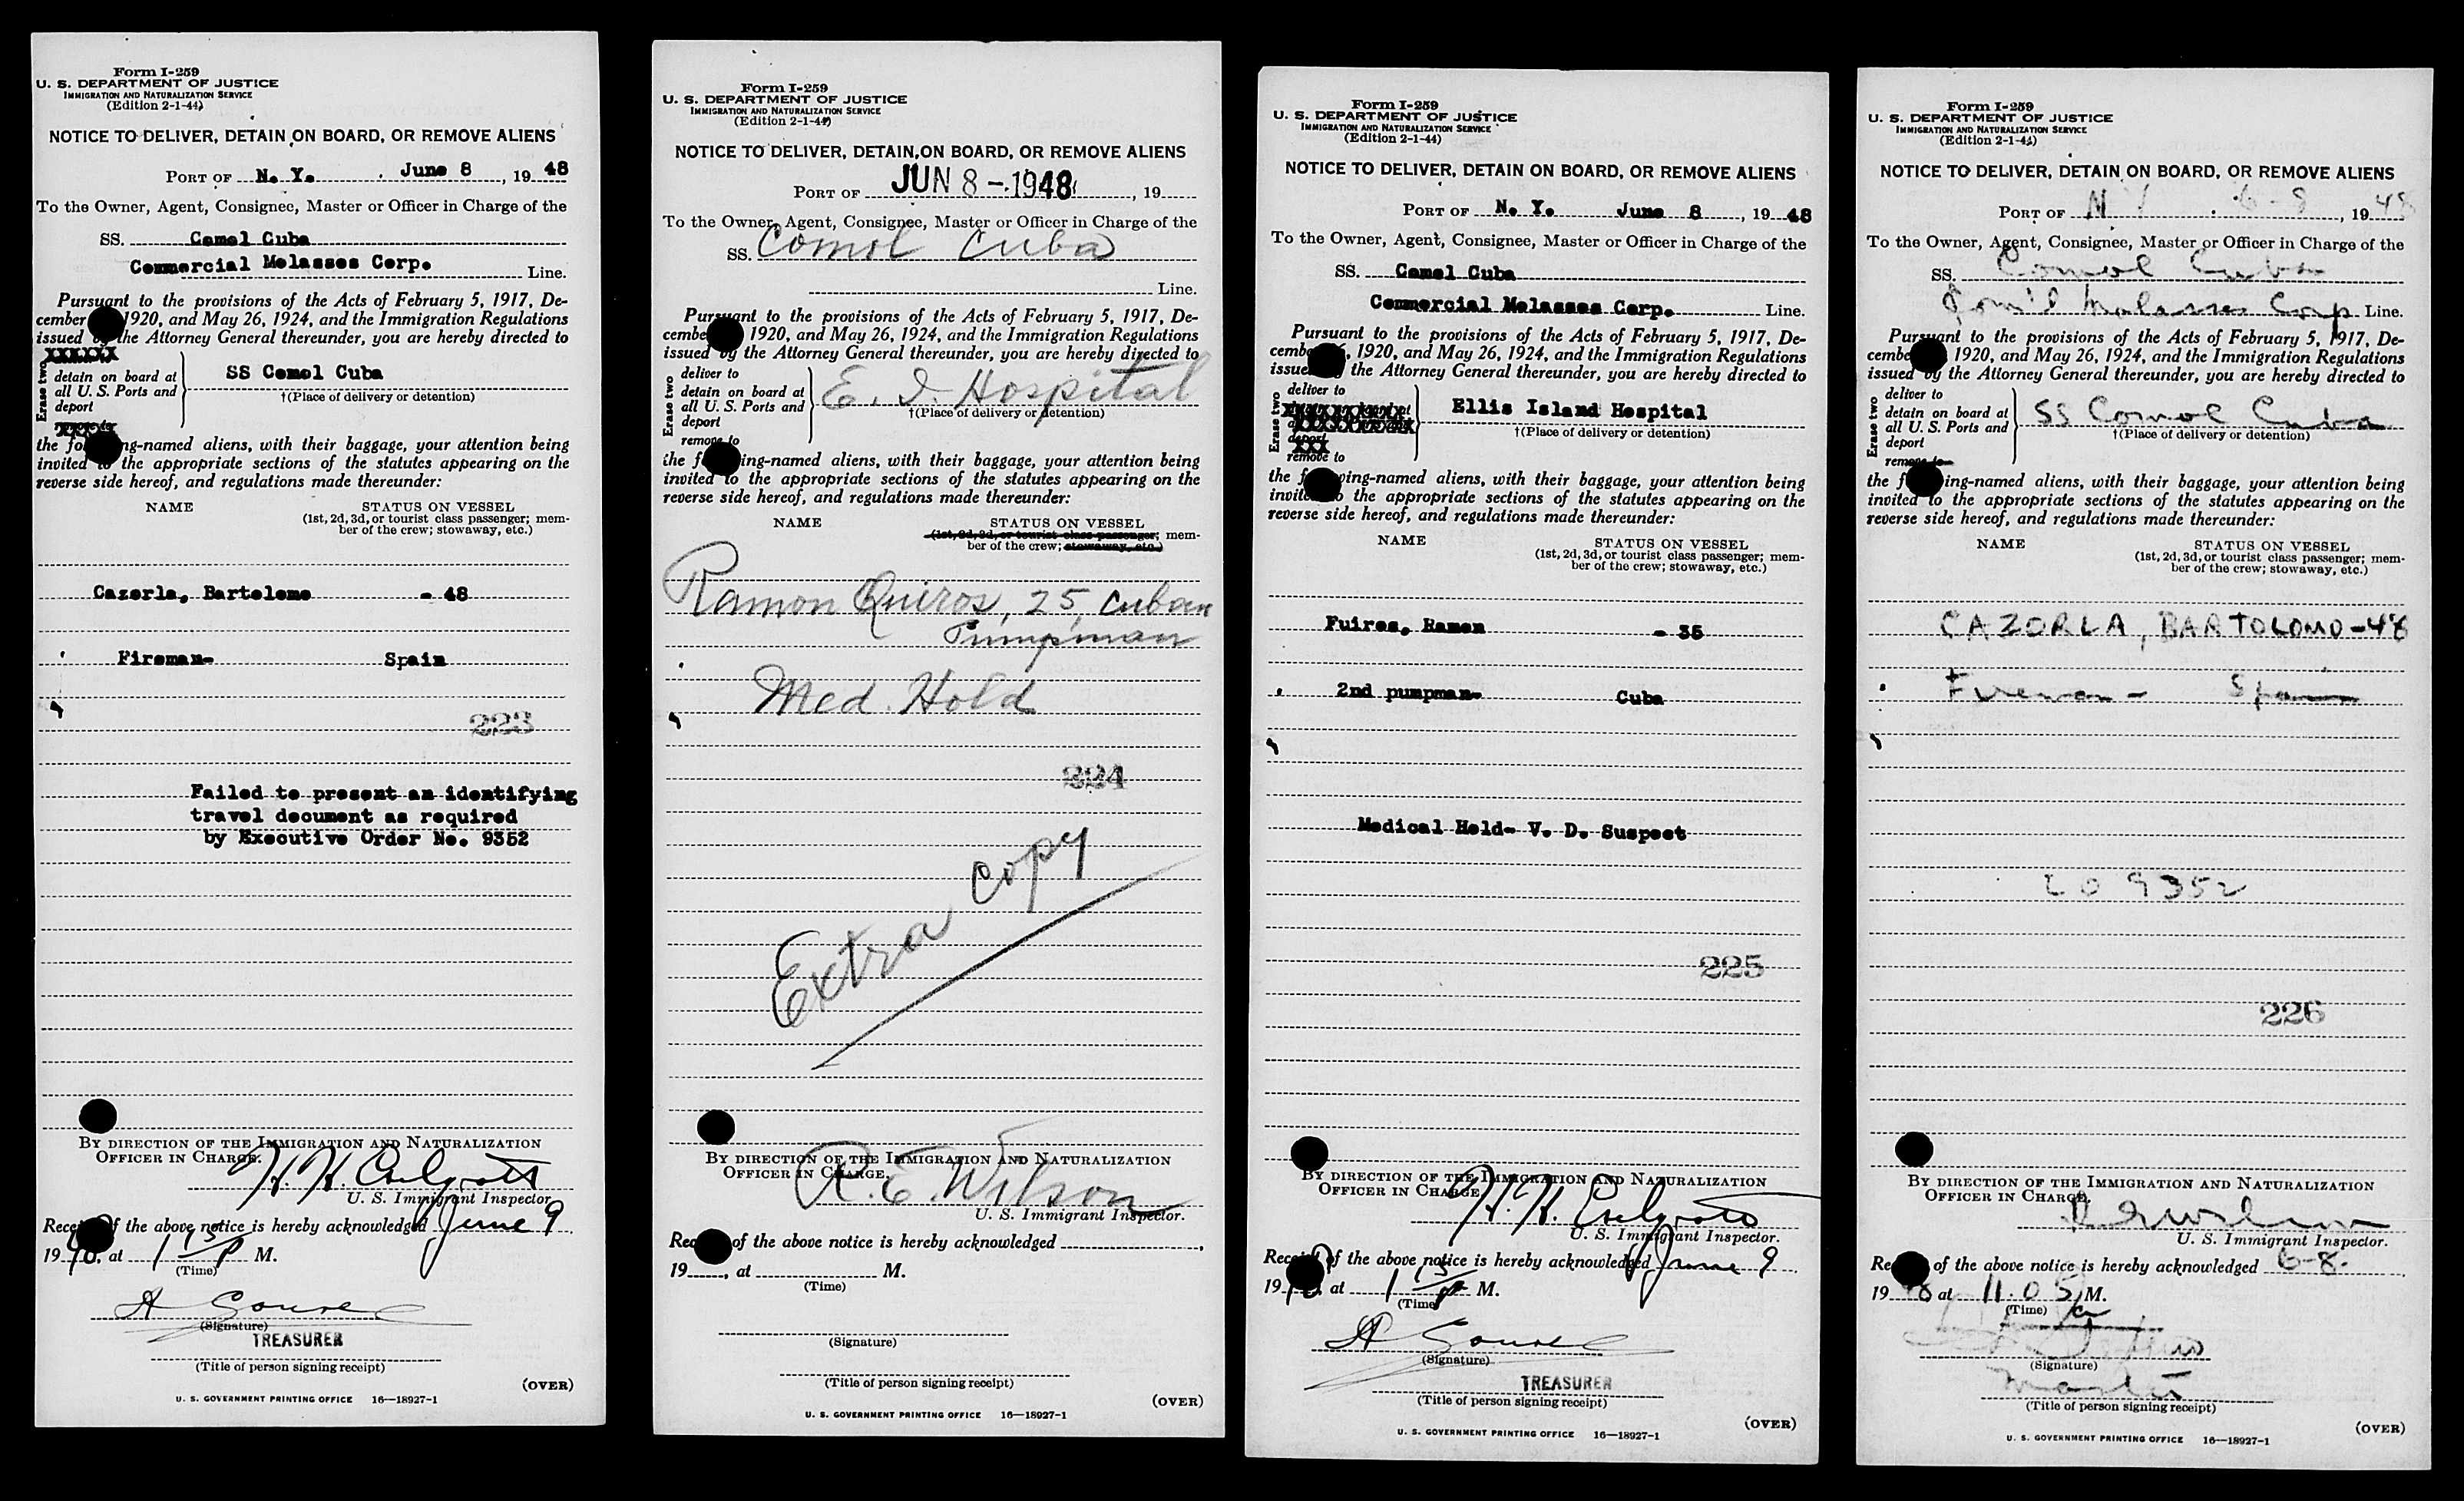 Form I-259
U. S. DEPARTMENT OF JUSTICE
IMMIGRATION AND NATURALIZATION SERVICE
(Edition 2-1-44)
NOTICE TO DELIVER, DETAIN ON BOARD, OR REMOVE ALIENS
PORT OF N. Y. June 8, 19 48
To the Owner, Agent, Consignee, Master or Officer in Charge of the
SS. Comol Cuba
Commercial Molasses Corp. Line.
Pursuant to the provisions of the Acts of February 5, 1917, De-
cember 1920, and May 26, 1924, and the Immigration Regulations
issued by the Attorney General thereunder, you are hereby directed to
Erase two
XXXXXX
detain on board at
all U. S. Ports and
deport
SS Comol Cuba
†(Place of delivery or detention)
the ng-named aliens, with their baggage, your attention being
invited to the appropriate sections of the statutes appearing on the
reverse side hereof, and regulations made thereunder:
NAME STATUS ON VESSEL
(1st, 2d, 3d, or tourist class passenger; mem-
ber of the crew; stowaway, etc.)
Cazorla, Bartolome - 48
Fireman- Spain
223
Failed to present an identifying
travel document as required
by Executive Order No. 9352
BY DIRECTION OF THE IMMIGRATION AND NATURALIZATION
OFFICER IN CHARGE.
H. H.
U. S. Immigrant Inspector.
Rece f the above notice is hereby acknowledged June 9,
19 48, at 1 15 P M.
(Time)
A
(Signature)
TREASURER
(Title of person signing receipt)
(OVER)
U. S. GOVERNMENT PRINTING OFFICE 16—18927-1
Form I-259
U. S. DEPARTMENT OF JUSTICE
IMMIGRATION AND NATURALIZATION SERVICE
(Edition 2-1-44)
NOTICE TO DELIVER, DETAIN ON BOARD, OR REMOVE ALIENS
PORT OF JUN 8 - 1948, 19
To the Owner, Agent, Consignee, Master or Officer in Charge of the
SS. Comol Cuba
Line.
Pursuant to the provisions of the Acts of February 5, 1917, De-
cembe 1920, and May 26, 1924, and the Immigration Regulations
issued by the Attorney General thereunder, you are hereby directed to
Erase two
deliver to
detain on board at
all U. S. Ports and
deport
remove to
E. I. Hospital
†(Place of delivery or detention)
the f ing-named aliens, with their baggage, your attention being
invited to the appropriate sections of the statutes appearing on the
reverse side hereof, and regulations made thereunder:
NAME STATUS ON VESSEL
(1st, 2d, 3d, or tourist class passenger; mem-
ber of the crew; stowaway, etc.)
Ramon Quiros, 25, Cuban
Pumpman
Med. Hold
224
Extra Copy
BY DIRECTION OF THE IMMIGRATION AND NATURALIZATION
OFFICER IN CHARGE.
R. E. Wilson
U. S. Immigrant Inspector.
Rec of the above notice is hereby acknowledged ,
19 , at M.
(Time)
(Signature)
(Title of person signing receipt)
(OVER)
U. S. GOVERNMENT PRINTING OFFICE 16—18927-1
Form I-259
U. S. DEPARTMENT OF JUSTICE
IMMIGRATION AND NATURALIZATION SERVICE
(Edition 2-1-44)
NOTICE TO DELIVER, DETAIN ON BOARD, OR REMOVE ALIENS
PORT OF N. Y. June 8, 19 48
To the Owner, Agent, Consignee, Master or Officer in Charge of the
SS. Comol Cuba
Commercial Molasses Corp. Line.
Pursuant to the provisions of the Acts of February 5, 1917, De-
cemb , 1920, and May 26, 1924, and the Immigration Regulations
issue the Attorney General thereunder, you are hereby directed to
Erase two
deliver to
deport
remove to
Ellis Island Hospital
†(Place of delivery or detention)
the f wing-named aliens, with their baggage, your attention being
invite o the appropriate sections of the statutes appearing on the
reverse side hereof, and regulations made thereunder:
NAME STATUS ON VESSEL
(1st, 2d, 3d, or tourist class passenger; mem-
ber of the crew; stowaway, etc.)
Fuiros, Ramon - 35
2nd pumpman- Cuba
Medical Hold- V. D. Suspect
225
BY DIRECTION OF THE IMMIGRATION AND NATURALIZATION
OFFICER IN CHARGE.
H. H.
U. S. Immigrant Inspector.
Rece f the above notice is hereby acknowledged June 9,
19 48, at 1 15 P M.
(Time)
A
(Signature)
TREASURER
(Title of person signing receipt)
(OVER)
U. S. GOVERNMENT PRINTING OFFICE 16—18927-1
Form I-259
U. S. DEPARTMENT OF JUSTICE
IMMIGRATION AND NATURALIZATION SERVICE
(Edition 2-1-44)
NOTICE TO DELIVER, DETAIN ON BOARD, OR REMOVE ALIENS
PORT OF N Y 6-8, 19 48
To the Owner, Agent, Consignee, Master or Officer in Charge of the
SS. Comol Cuba
Com'l Molasses Corp Line.
Pursuant to the provisions of the Acts of February 5, 1917, De-
cembe 1920, and May 26, 1924, and the Immigration Regulations
issued by the Attorney General thereunder, you are hereby directed to
Erase two
deliver to
detain on board at
all U. S. Ports and
deport
remove to
SS Comol Cuba
†(Place of delivery or detention)
the f ing-named aliens, with their baggage, your attention being
invited to the appropriate sections of the statutes appearing on the
reverse side hereof, and regulations made thereunder:
NAME STATUS ON VESSEL
(1st, 2d, 3d, or tourist class passenger; mem-
ber of the crew; stowaway, etc.)
CAZORLA, BARTOLOMO-48
Fireman - Spain
EO 9352
226
BY DIRECTION OF THE IMMIGRATION AND NATURALIZATION
OFFICER IN CHARGE.
R E Wilson
U. S. Immigrant Inspector.
Re of the above notice is hereby acknowledged 6-8.,
19 48 at 11.05 a M.
(Time)
(Signature)
Master
(Title of person signing receipt)
(OVER)
U. S. GOVERNMENT PRINTING OFFICE 16—18927-1